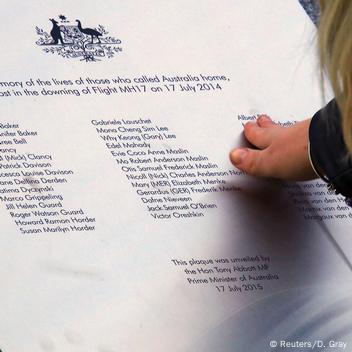 emory of the lives of those who called Australia home,
ost in the downing of Flight MH17 on 17 July 2014
Baker
nnifer Baker
ree Bell
ancy
(Nick) Clancy
Patrick Davison
ncesca Louise Davison
ane Dellina Derden
atima Dyczynski
Marco Grippeling
Jill Helen Guard
Roger Watson Guard
Howard Ramon Horder
Susan Marilyn Horder
Gabriele Lauschet
Mona Cheng Sim Lee
Why Keong (Gary) Lee
Edel Mahady
Evie Coco Anne Maslin
Mo Robert Anderson Maslin
Otis Samuel Frederick Maslin
Nicoll (Nick) Charles Anderson Norris
Mary (MER) Elizabeth Menke
Gerardus (GER) Frederik Menke
Dafne Nieveen
Jack Samuel O'Brien
Victor Oreshkin
Albert
van den
van den
van den
This plaque was unveiled by
the Hon Tony Abbott MP
Prime Minister of Australia
17 July 2015
© Reuters/D. Gray